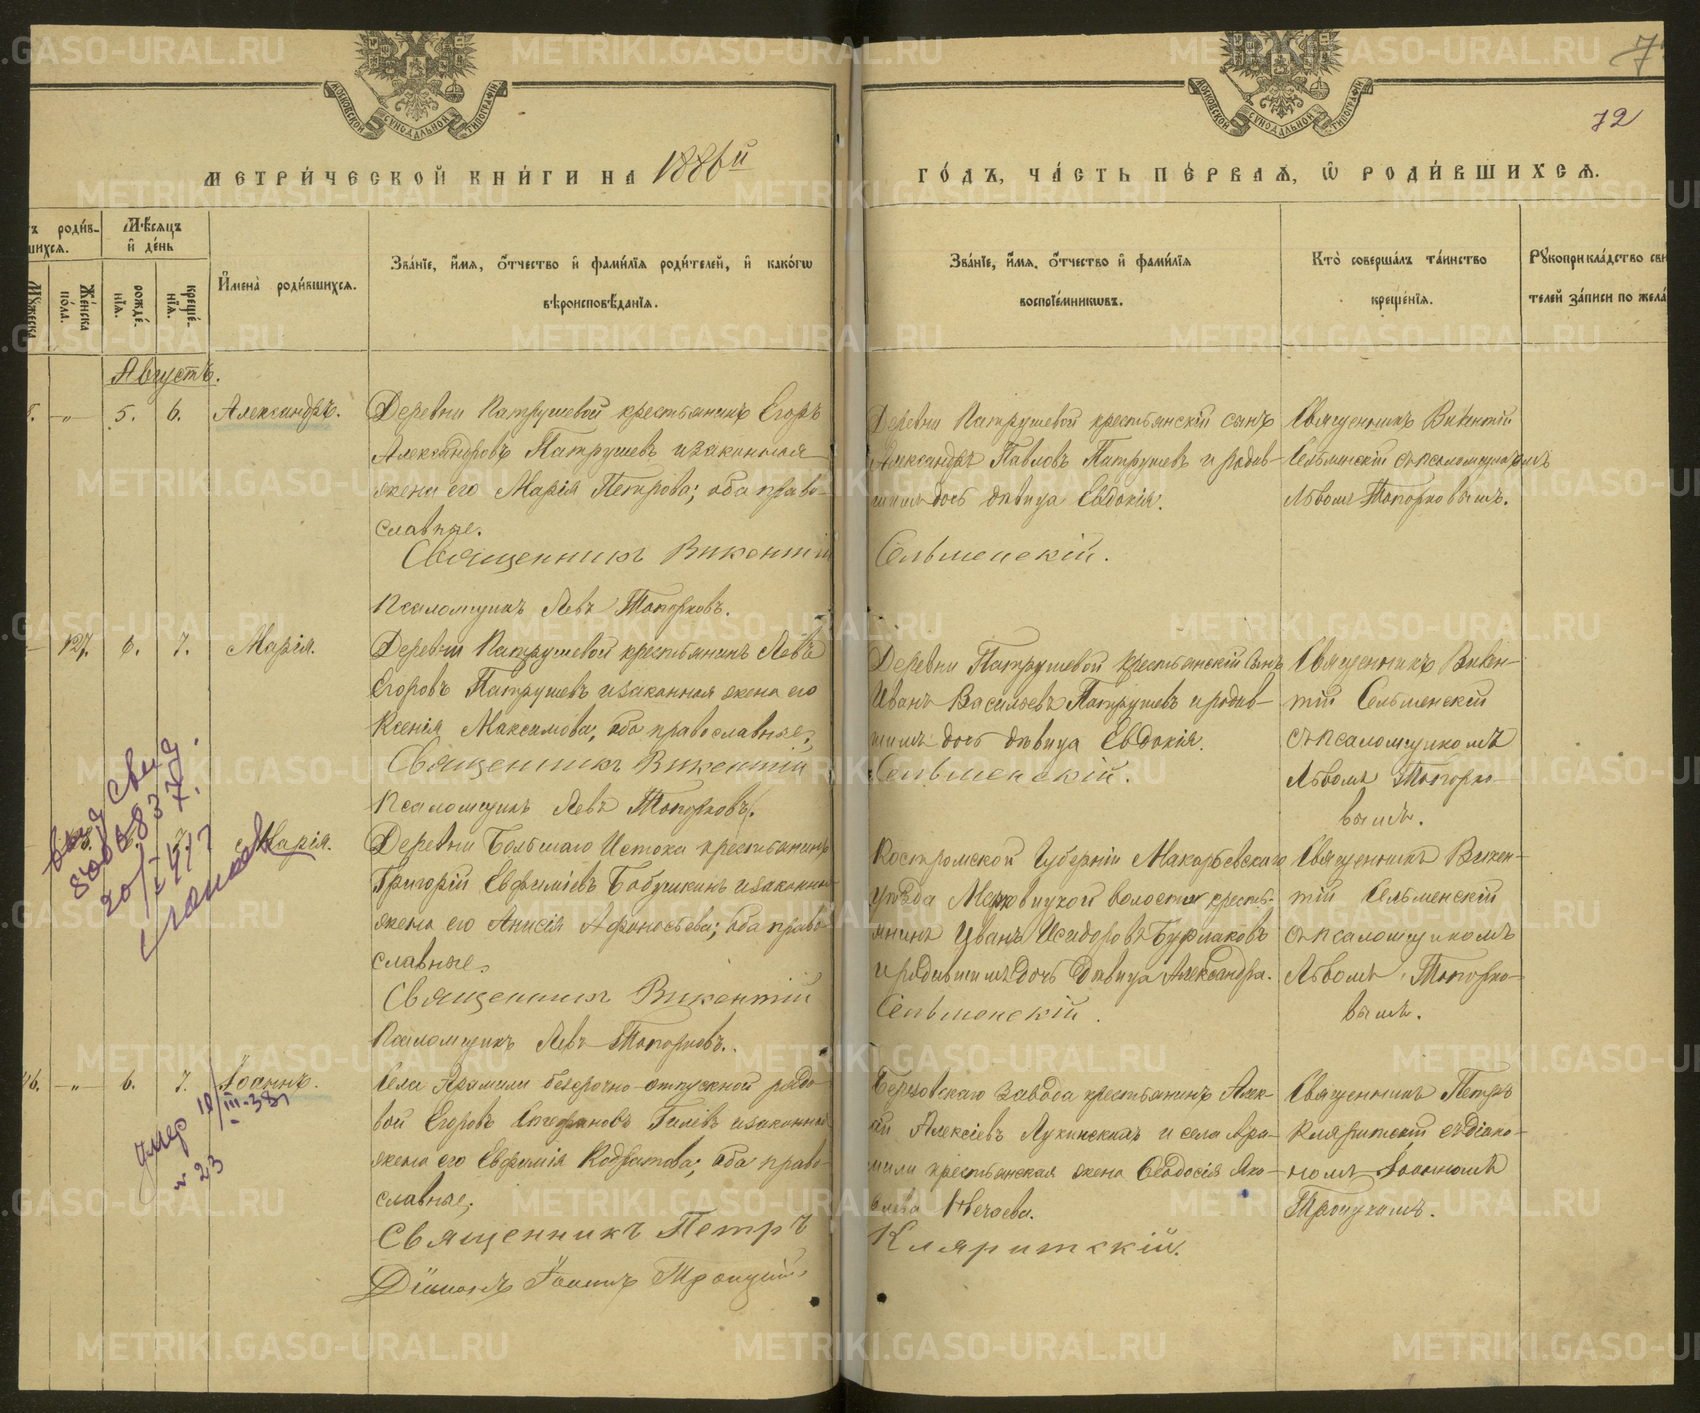 МЕТРИ́ЧЕСКОЙ КНИ́ГИ НА 1886й
ГО́ДЪ, ЧА́СТЬ ПЕ́РВАѦ, Ѡ҆ РОДИ́ВШИХСѦ.
7
72
МОСКОВСКОЙ СѴНОДАЛЬНОЙ ТИПОГРАФІИ
МОСКОВСКОЙ СѴНОДАЛЬНОЙ ТИПОГРАФІИ
ъ роди́в-
шихсѧ.
Мѣ́сѧцъ
и҆ де́нь
Мꙋ́жеска
Же́нска
по́ла.
рожде́-
нїѧ.
креще́-
нїѧ.
И҆мена̀ роди́вшихсѧ.
Зва́нїе, и҆́мѧ, ѻ҆́тчество и҆ фами́лїѧ роди́телей, и҆ како́гѡ
вѣроисповѣ́данїѧ.
Зва́нїе, и҆́мѧ, ѻ҆́тчество и҆ фами́лїѧ
воспрїе́мникѡвъ.
Кто̀ соверша́лъ та́инство
креще́нїѧ.
Рꙋкоприкла́дство сви
телей за́писи по жела́
Августъ.
„ 5. 6. Александръ.
Деревни Патрушевой крестьянинъ Егоръ
Александровъ Патрушевъ и законная
жена его Марія Петрова; оба право-
славные.
Священникъ Викентій
Псаломщикъ Левъ Топорковъ.
Деревни Патрушевой крестьянскій сынъ
Александръ Павловъ Патрушевъ и родив-
шаго дочь дѣвица Евдокія.
Сельменскій.
Священникъ Викентій
Сельменскій съ псаломщикомъ
Львомъ Топорковымъ.
127. 6. 7. Марія.
Деревни Патрушевой крестьянинъ Левъ
Егоровъ Патрушевъ и законная жена его
Ксенія Максимова; оба православные.
Священникъ Викентій
Псаломщикъ Левъ Топорковъ.
Деревни Патрушевой крестьянскій сынъ
Иванъ Васильевъ Патрушевъ и родив-
дочь дѣвица Евдокія.
Сельменскій.
Священникъ Викен-
тій Сельменскій
съ псаломщикомъ
Львомъ Топорко-
вымъ.
7. Марія.
Деревни Большаго Истока крестьянинъ
Григорій Евфиміевъ Бабушкинъ и законная
жена его Анисія Афанасьева; оба право-
славные.
Священникъ Викентій
Псаломщикъ Левъ Топорковъ.
Костромской Губерніи Макарьевскаго
уѣзда волости кресть-
янинъ Иванъ Исидоровъ Бурлаковъ
и дочь дѣвица Александра.
Сельменскій.
Священникъ Викен-
тій Сельменскій
съ псаломщикомъ
Львомъ Топорко-
вымъ.
20/I 47 г
6. „ 6. 7. Іоаннъ.
умер 18/III-38
№ 23
Села Арамили безсрочно-отпускной рядо-
вой Егоровъ Гилевъ и законная
жена его Евфимія Кодратова; оба право-
славные.
Священникъ Петръ
Діаконъ Іоаннъ Троицкій.
Березовскаго завода крестьянинъ Алек-
ѣй Алексіевъ Лукинскихъ и села Ара-
мили крестьянская жена Ѳеодосія Яко-
влева Нечаева.
Кляритскій.
Священникъ Петръ
Кляритскій съ діако-
номъ Іоанномъ
Троицкимъ.
METRIKI.GASO-URAL.RU